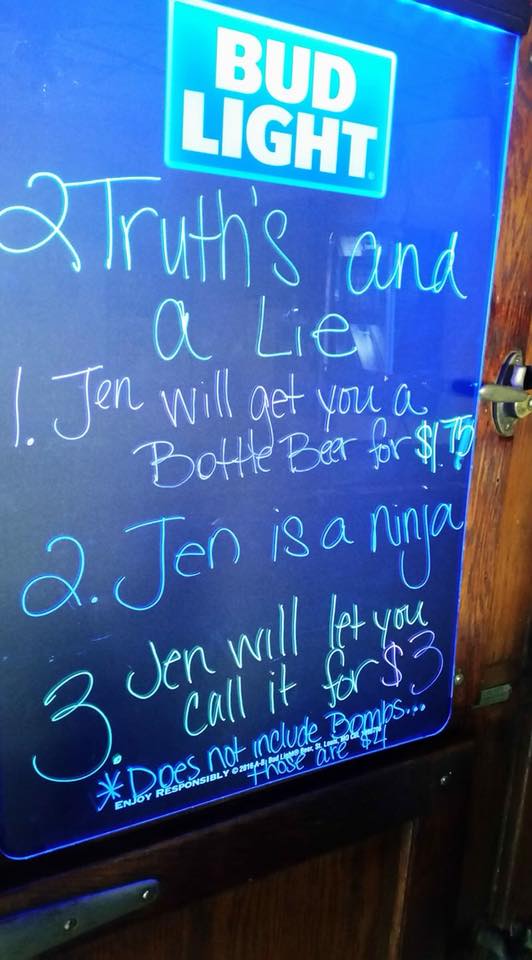 BUD
LIGHT
2 Truth's and
a Lie
1. Jen will get you a
Bottle Beer for $1.75
2. Jen is a ninja
3. Jen will let you
call it for $3
*Does not include Bombs...
those are $4
ENJOY RESPONSIBLY © 2016 A-B, Bud Light® Beer, St. Louis, MO